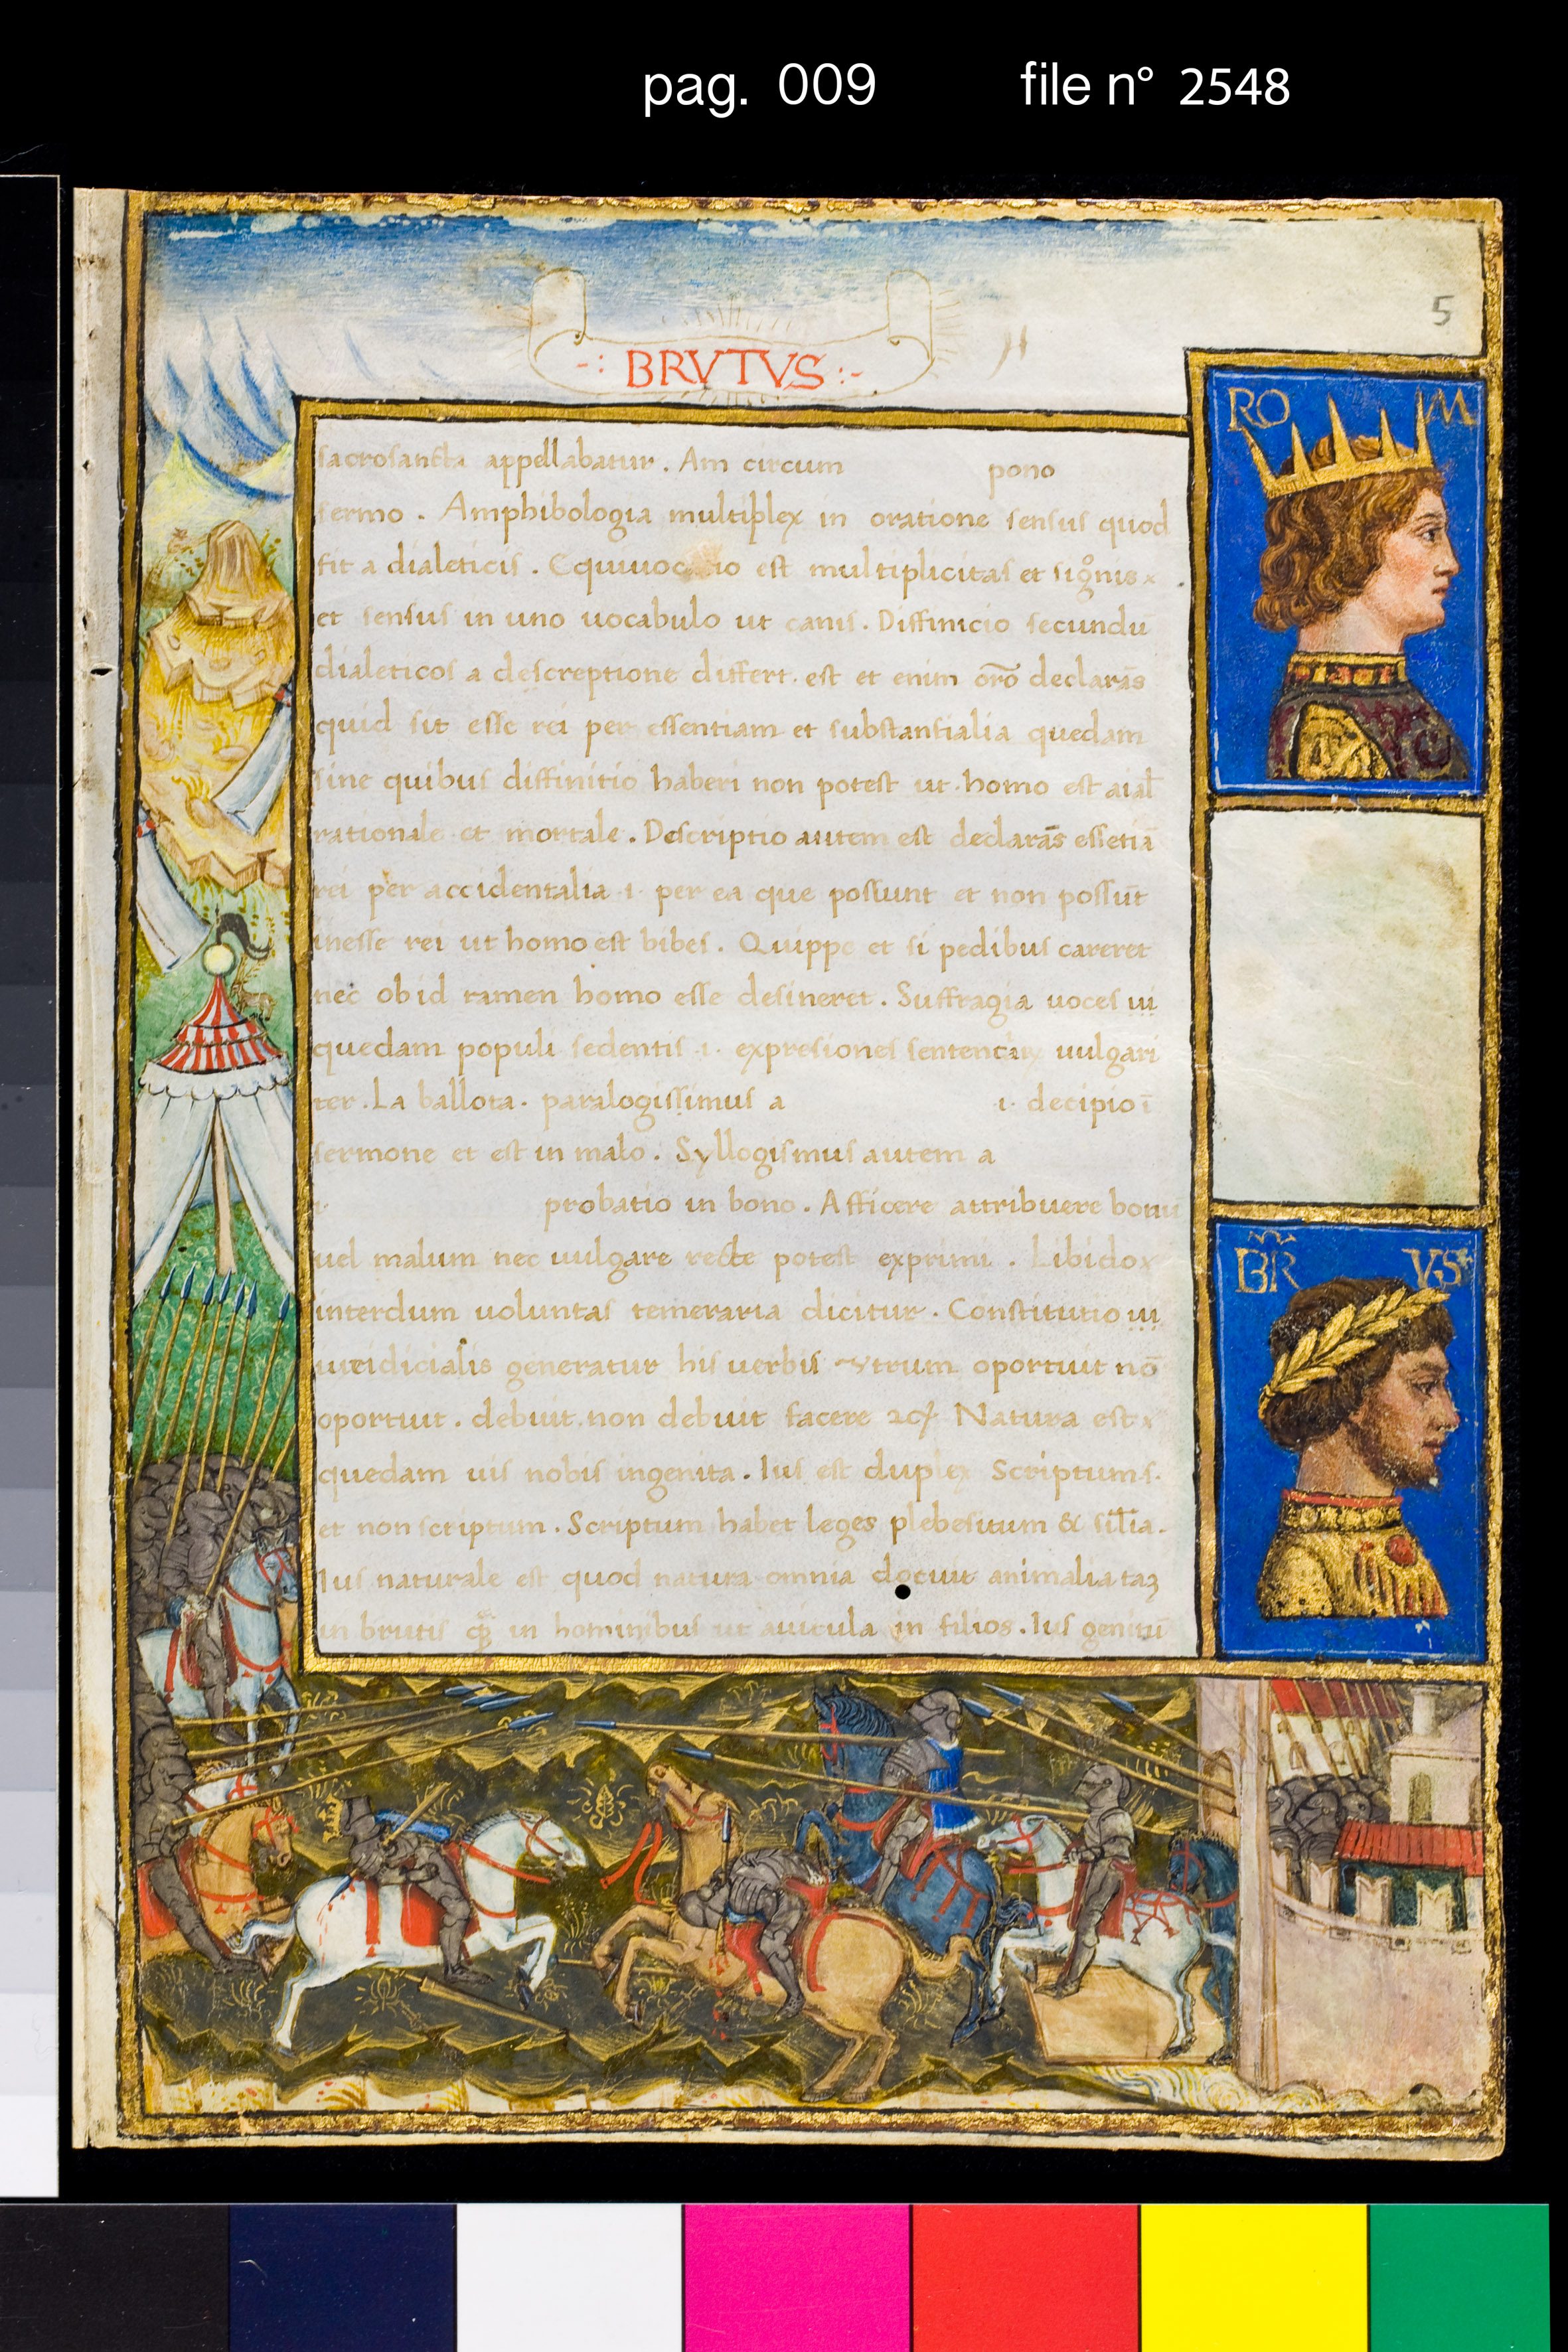 pag. 009 file n° 2548
5
-: BRVTVS :-
RO M
sacrosancta appellabatur . Am circum pono
sermo . Amphibologia multiplex in oratione sensus quod
fit a dialeticis . Equiuoc io est multiplicitas et
et sensus in uno uocabulo ut canis . Diffinicio secundū
dialeticos a descreptione differt . est et enim orō declarās
quid sit esse rei per essentiam et substantialia quedam
sine quibus diffinitio haberi non potest ut . homo est aial
rationale et mortale . Descriptio autem est declarās essetiā
rei per accidentalia .i. per ea que possunt et non possūt
inesse rei ut homo est bibes . Quippe et si pedibus careret
nec ob id tamen homo esse desineret . Suffragia uoces ui
quedam populi sedentis .i. expresiones uulgari
ter . La ballota . paralogissimus a .i. decipio ī
sermone et est in malo . Syllogismus autem a
i. probatio in bono . Afficere attribuere bonū
uel malum nec uulgare recte potest exprimi . Libido
interdum uoluntas temeraria dicitur . Constitutio iu
iureidicialis generatur his uerbis vtrum oportuit nō
oportuit . debuit . non debuit facere Natura est
quedam uis nobis ingenita . Ius est duplex Scriptum s.
et non scriptum . Scriptum habet leges plebesitum & sīlia .
Ius naturale est quod natura omnia docuit animalia taʒ
in brutis in hominibus ut auicula in filios . Ius genitū
BR VS